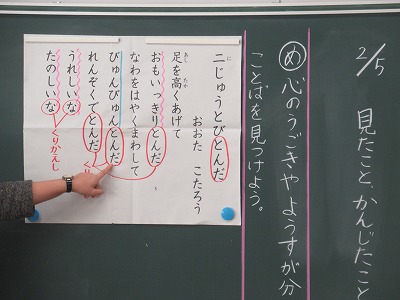 2/5
見たこと、かんじたこと
め 心のうごきや ようすが分
ことばを見つけよう。
二じゅうとびとんだ
おおた こたろう
足を高くあげて
おもいっきりとんだ
なわをはやくまわして
びゅんびゅんとんだ
れんぞくでとんだ
うれしいな
たのしいな
くりかえし